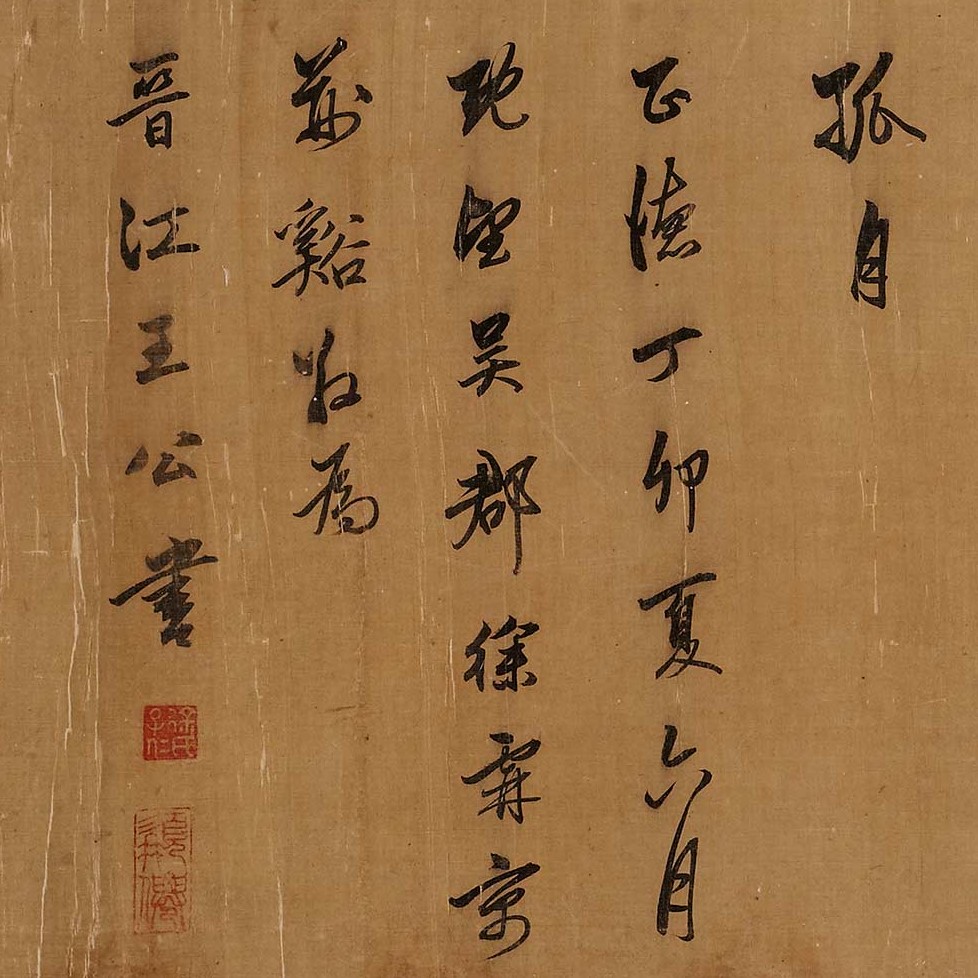 孤月
正德丁卯夏六月
既望吳郡徐霖
谿為
晉江王公書
徐氏子仁